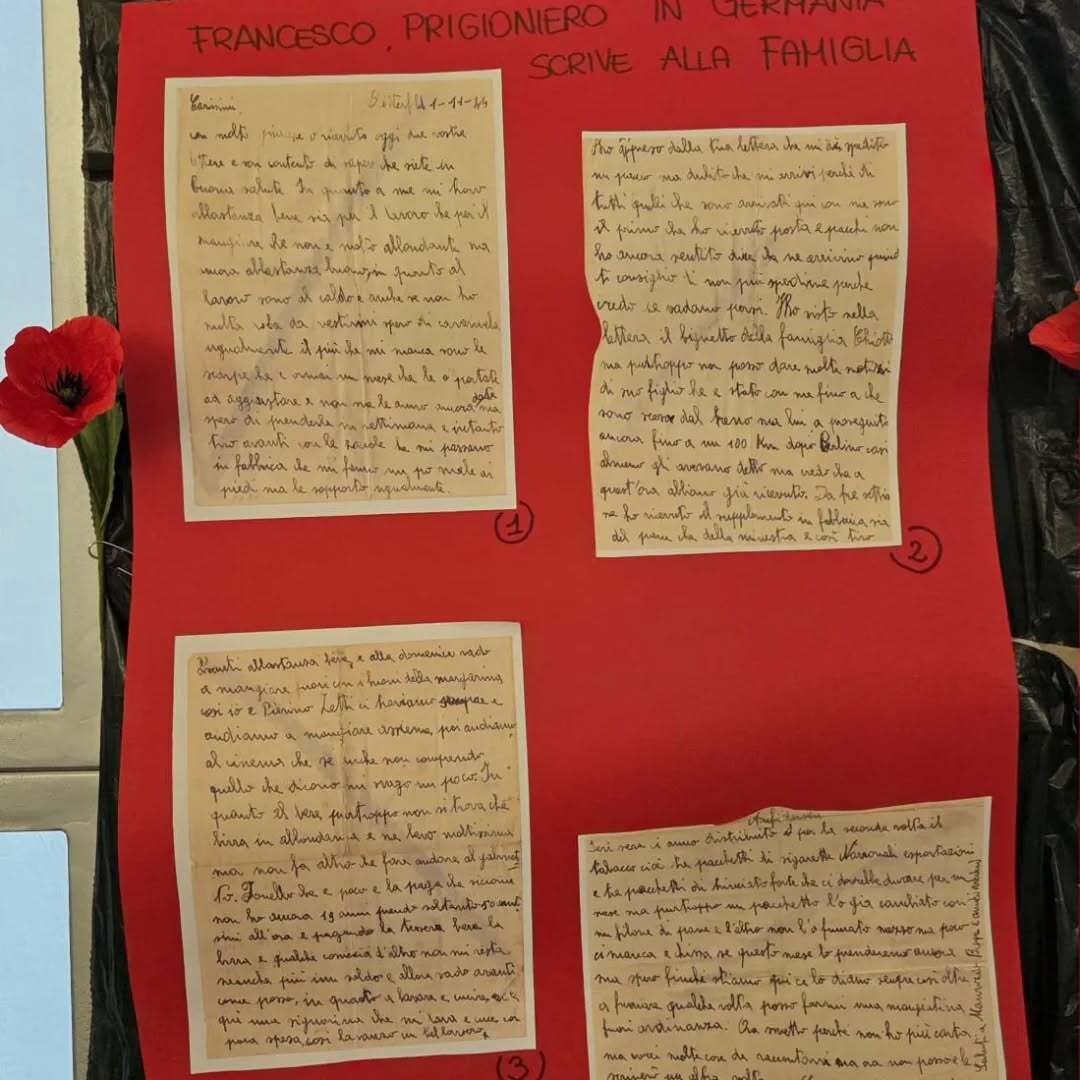 FRANCESCO, PRIGIONIERO IN GERMANIA
SCRIVE ALLA FAMIGLIA
Carissimi, 1-11-44
con molto piacere o ricevuto oggi due vostre
e son contento di sapere che siete in
buona salute. In quanto a me mi trovo
abbastanza bene sia per il lavoro che per il
mangiare che non e molto abbondante ma
ancora abbastanza quanto al
lavoro sono al caldo e anche se non ho
molta roba da vestirmi spero di
ugualmente il più che mi manca sono le
scarpe che è ormai un mese che le o portate
ad aggiustare e non me le anno ancora date ma
spero di prenderle in settimana e intanto
tiro avanti con le che mi passano
in fabbrica che mi fanno un po male ai
piedi ma le sopporto ugualmente.
1
Ho appreso dalla tua lettera che mi ai spedito
un pacco ma dubito che mi arrivi perché di
tutti quelli che sono arrivati qui con me sono
il primo che ho ricevuto posta e pacchi non
ho ancora sentito dire che ne arrivino quindi
ti consiglio di non più spedirne perche
credo se vadano persi. Ho visto nella
lettera il biglietto della famiglia
ma purtroppo non posso dare molte notizie
di suo figlio che e stato con me fino a che
sono sceso dal treno ma lui a proseguito
ancora fino a un 100 Km dopo Berlino così
almeno gli avevano detto ma credo che a
quest'ora abbiano già ricevuto. Da
ne ho ricevuto il supplemento in fabbrica sia
del pane che della minestra e così tiro
2
avanti abbastanza bene, e alla domenica vado
a mangiare fuori con i buoni della margarina
così io e Pierino Zetti ci troviamo sempre e
andiamo a mangiare assieme, poi andiamo
al cinema che se anche non comprendo
quello che dicono mi svago un poco. In
quanto al bere purtroppo non si trova che
birra in abbondanza e ne bevo moltissima
ma non fa altro che fare andare al gabinetto
che e poco e la paga che siccome
non ho ancora 19 anni prendo soltanto 50
all'ora e pagando la tessera bere la
birra e qualche comissia d'altro non mi resta
neanche più un soldo e allora vado avanti
come posso, in quanto a lavare e cucire,
qui una signorina che mi lava e cuce con
poca spesa, così
3
Ieri sera ci anno distribuito per la seconda volta il
tabacco cioè tre pacchetti di sigarette Nazionali esportazioni
e tre pacchetti di trinciato forte che ci dovrebbe durare per un
mese ma purtroppo un pacchetto l'o già cambiato con
un filone di pane e l'altro non l'o fumato mezzo ma poco
ci manca e chissà se questo mese lo prenderemo ancora
ma spero finche stiamo qui ce lo diano sempre così oltre
a fumare qualche volta posso farmi una mangiatina
fuori ordinanza. Ora smetto perché non ho più carta
ma avrei molte cose da raccontarvi ma ora non posso e le
scriverò un altra volta